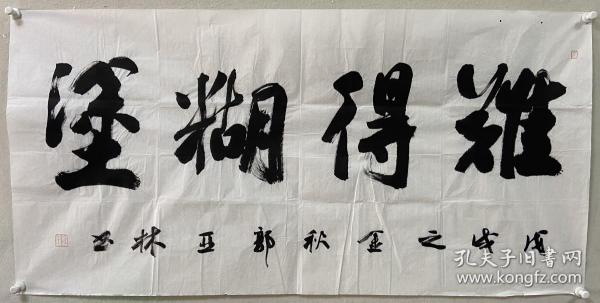 難得糊塗
戊戌之金秋郭亚林书
孔夫子旧书网
www.kongfz.com